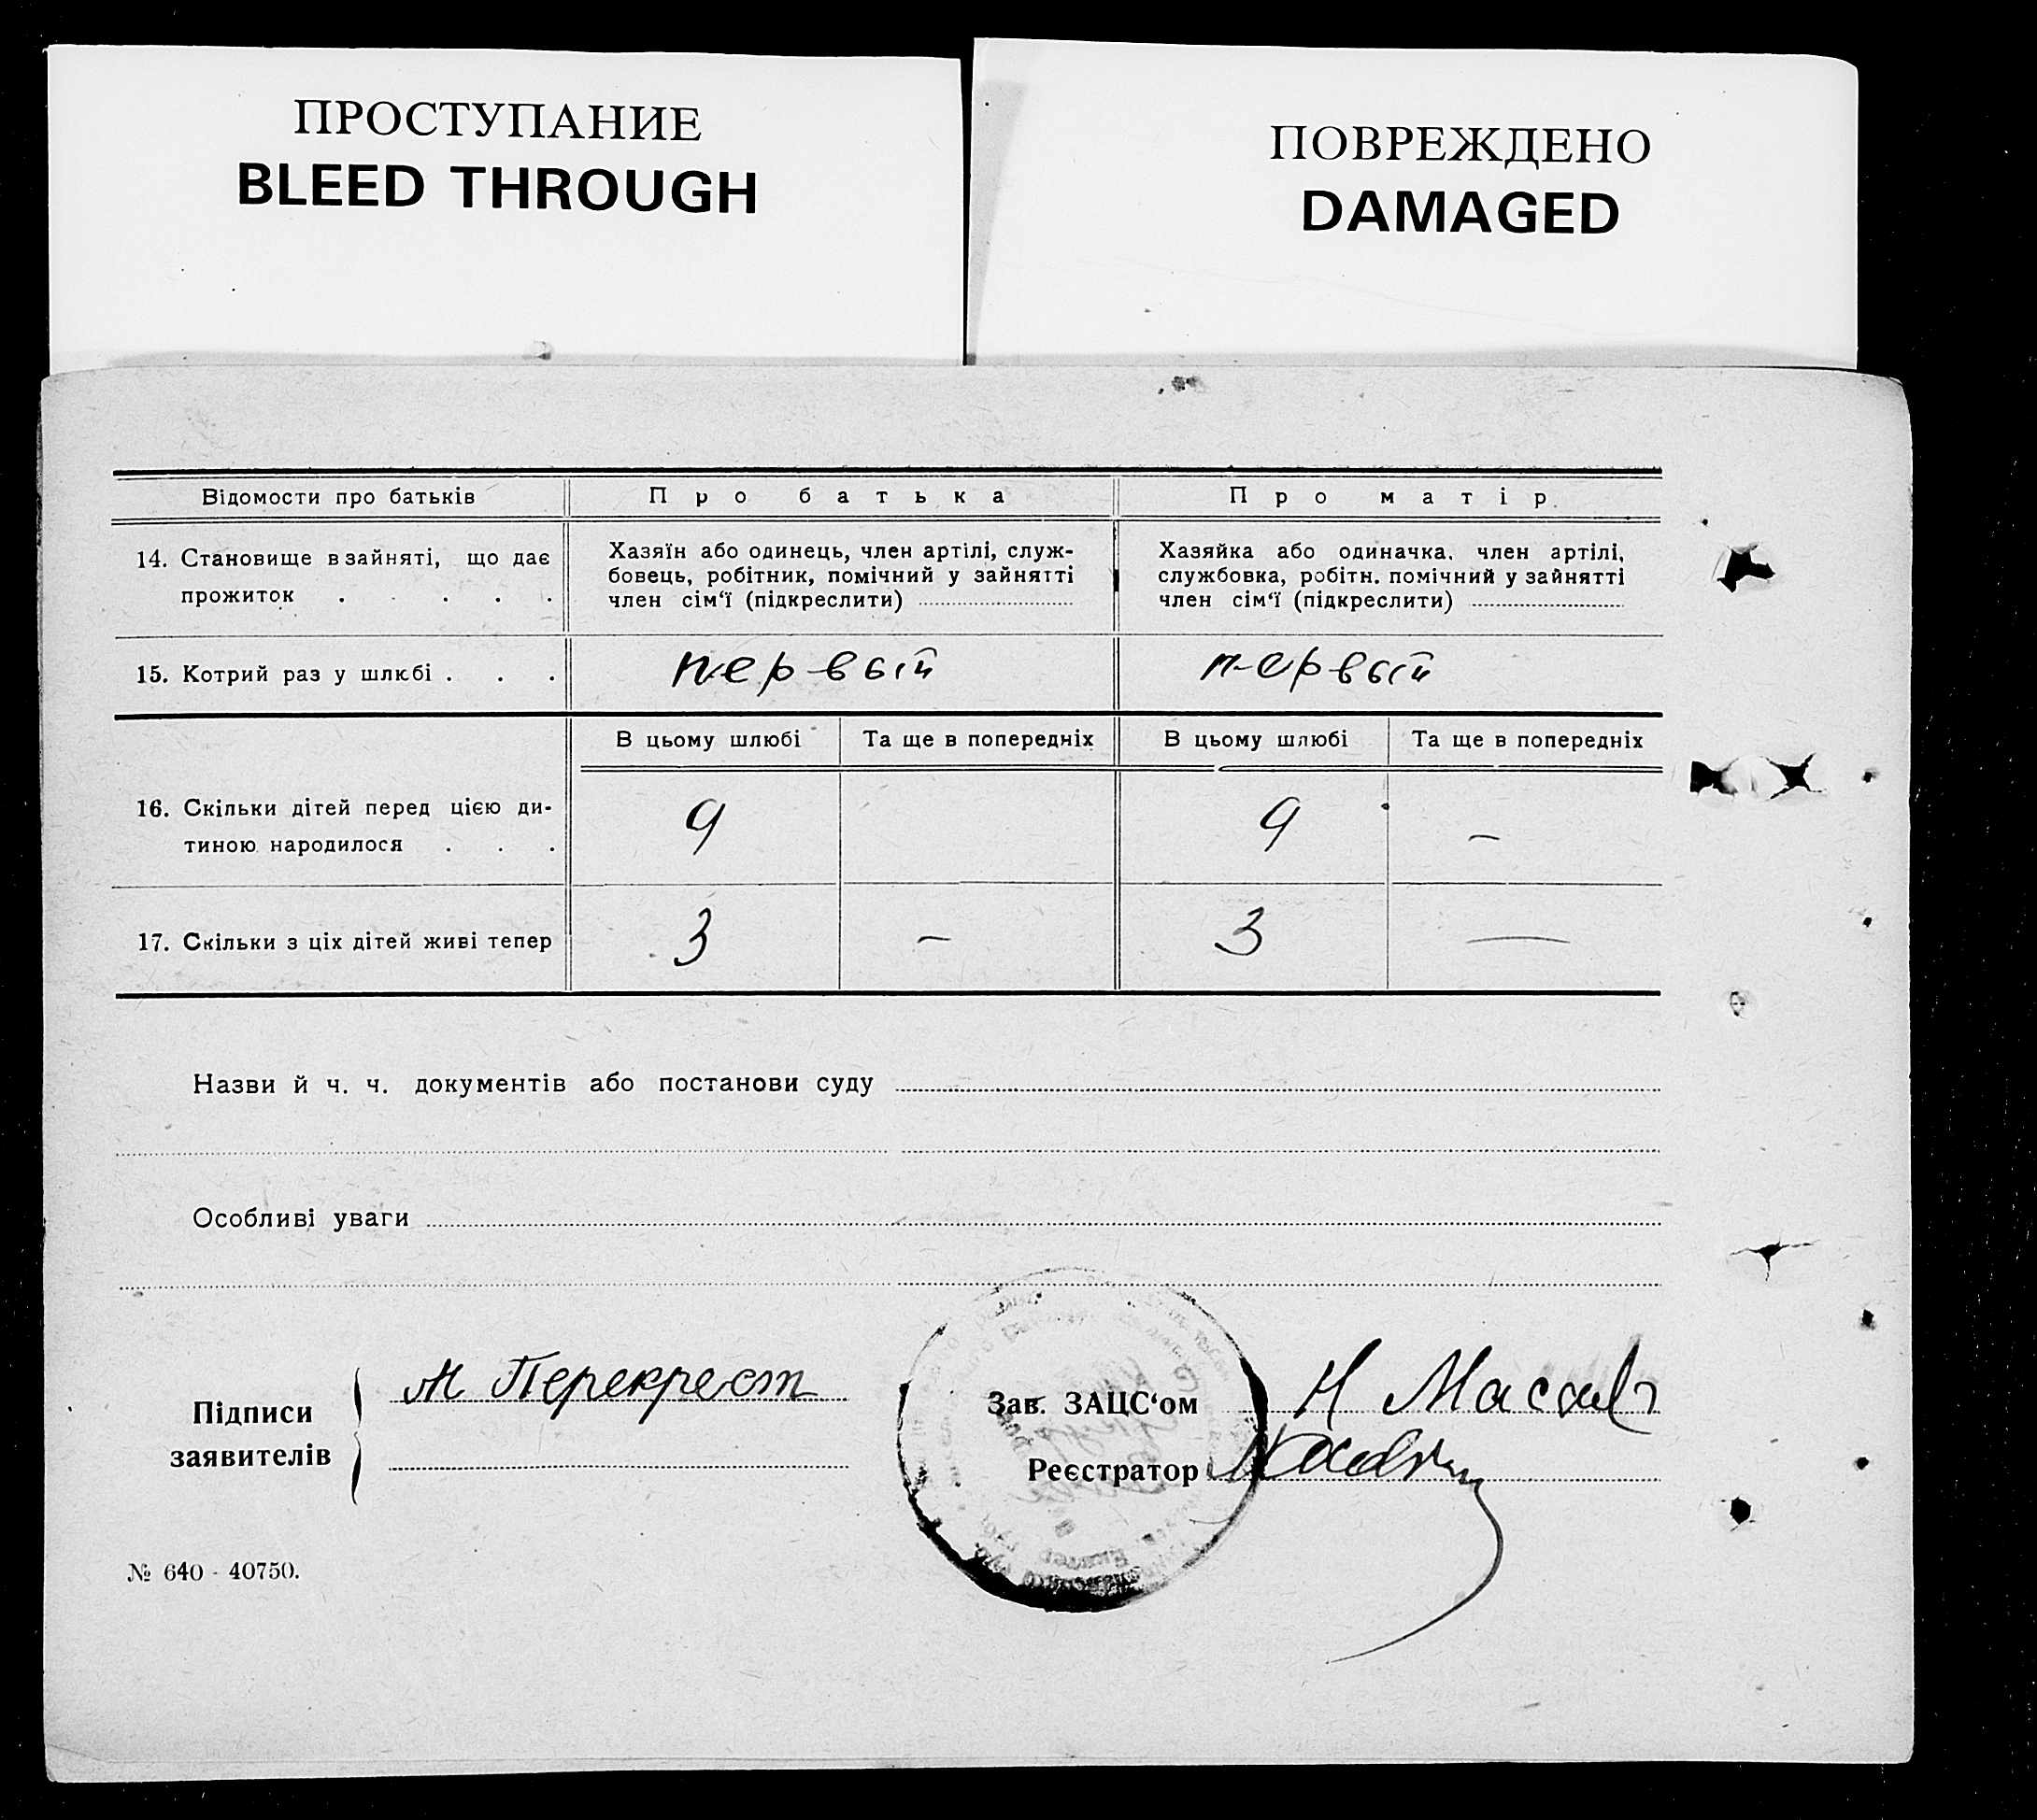 ПРОСТУПАНИЕ
BLEED THROUGH
ПОВРЕЖДЕНО
DAMAGED
Відомости про батьків
Про батька
Про матір.
14. Становище в зайняті, що дає
прожиток . . . . .
Хазяїн або одинець, член артілі, служ-
бовець, робітник, помічний у зайнятті
член сім‘ї (підкреслити)
Хазяйка або одиначка. член артілі,
службовка, робітн. помічний у зайнятті
член сім‘ї (підкреслити)
15. Котрий раз у шлюбі . . .
первый
первый
В цьому шлюбі
Та ще в попередніх
В цьому шлюбі
Та ще в попередніх
16. Скільки дітей перед цією ди-
тиною народилося . . .
9
9
–
17. Скільки з ціх дітей живі тепер
3
–
3
—
Назви й ч. ч. документів або постанови суду
Особливі уваги
Підписи
заявителів
М Перекрест
Зав. ЗАЦС‘ом
Н
Реєстратор
№ 640 - 40750.